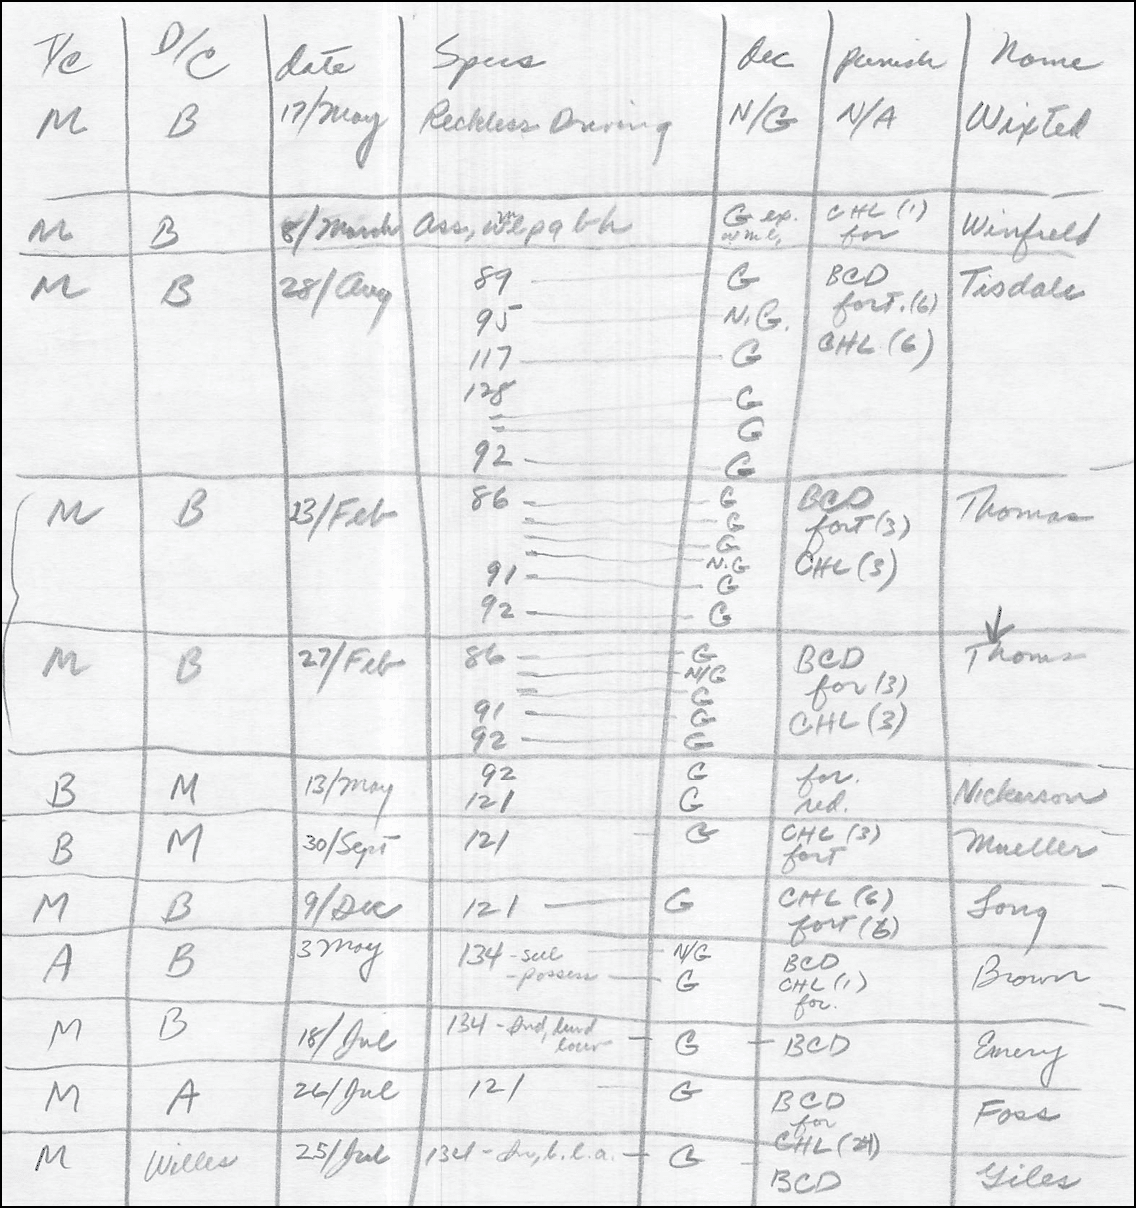 T/C D/C date Specs dec punish Name
M B 17/May Reckless Driving N/G N/A Wixted
M B 8/March Ass, G ex. CHL (1) Winfield
for
M B 28/Aug 89 G BCD Tisdale
95 N.G. fort.(6)
117 G CHL (6)
128 G
= G
92 G
M B 23/Feb 86 G BCD Thomas
G fort (3)
G
N.G CHL (3)
91 G
92 G
M B 27/Feb 86 G BCD Thoms
N/G for (3)
G
91 G CHL (3)
92 G
B M 13/May 92 G for. Nickerson
121 G red.
B M 30/Sept 121 G CHL (3) Mueller
fort
M B 9/Dec 121 G CHL (6) Long
fort (6)
A B 3 May 134 - sell N/G BCD Brown
- possess G CHL (1)
for.
M B 18/Jul 134 - Ind, G BCD Emery
M A 26/Jul 121 G BCD Foss
for
CHL (24)
M Willes 25/Jul 134 - G BCD Giles